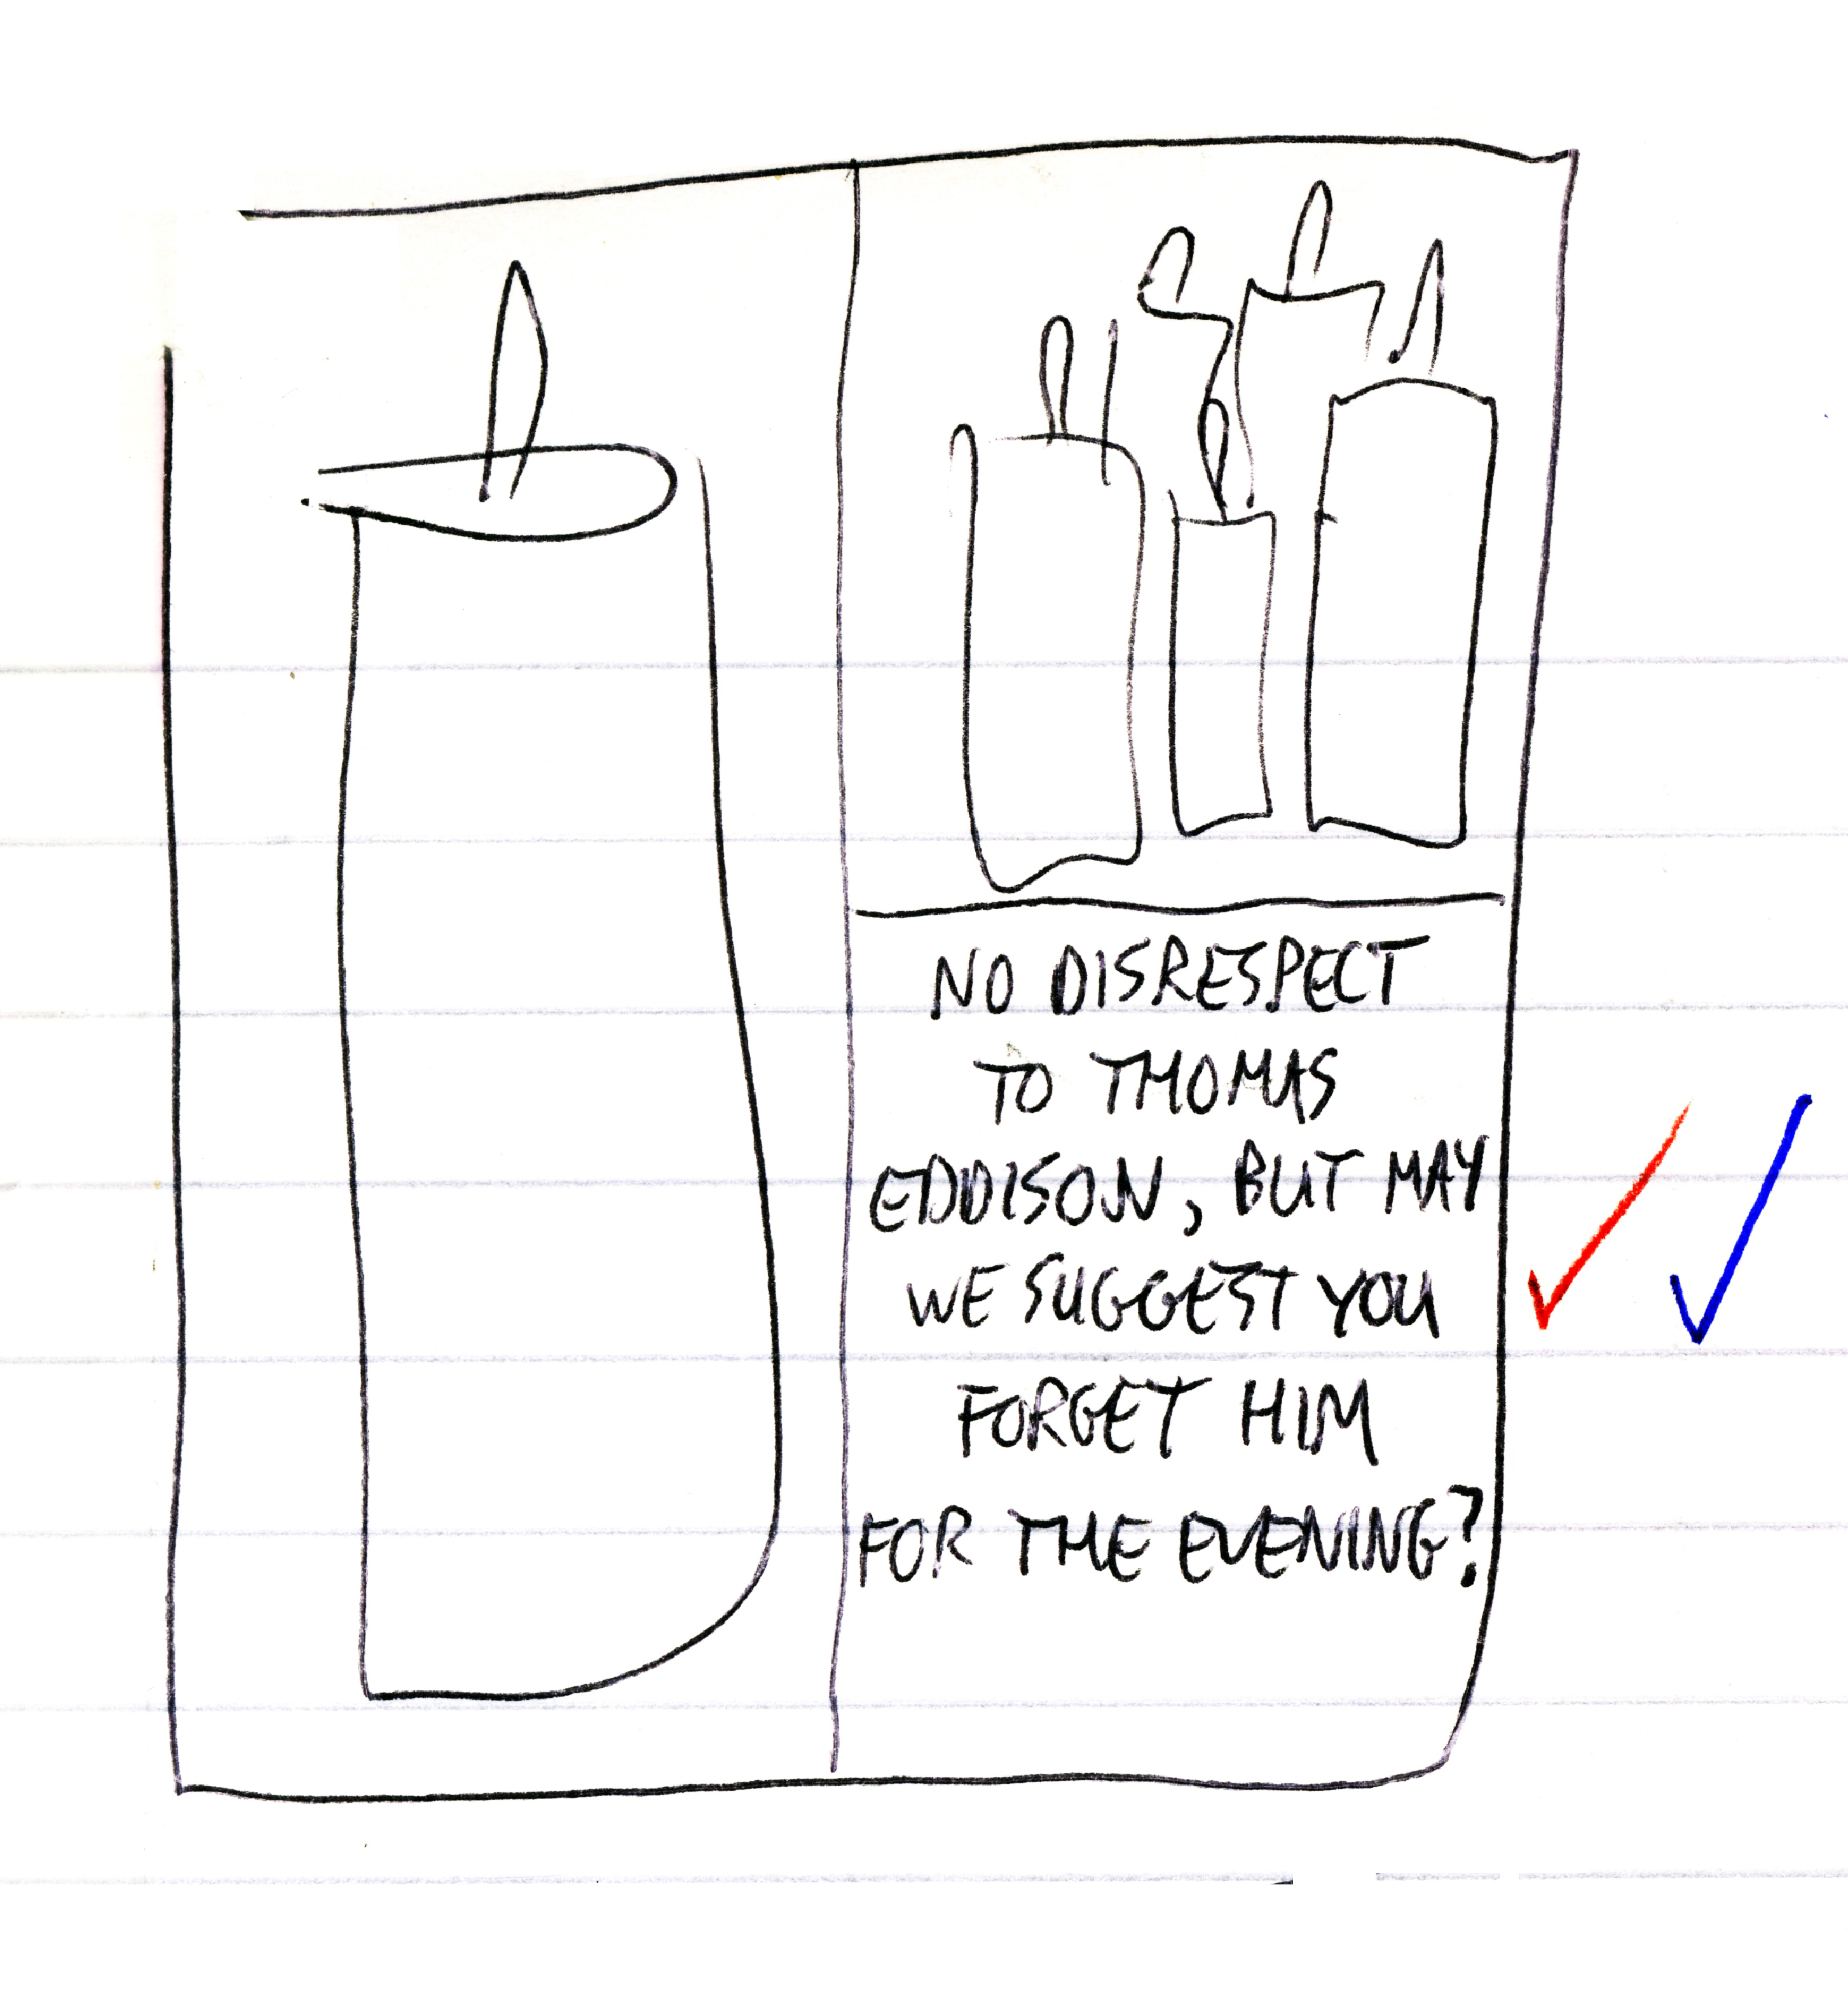 NO DISRESPECT
TO THOMAS
EDDISON, BUT MAY
WE SUGGEST YOU
FORGET HIM
FOR THE EVENING?